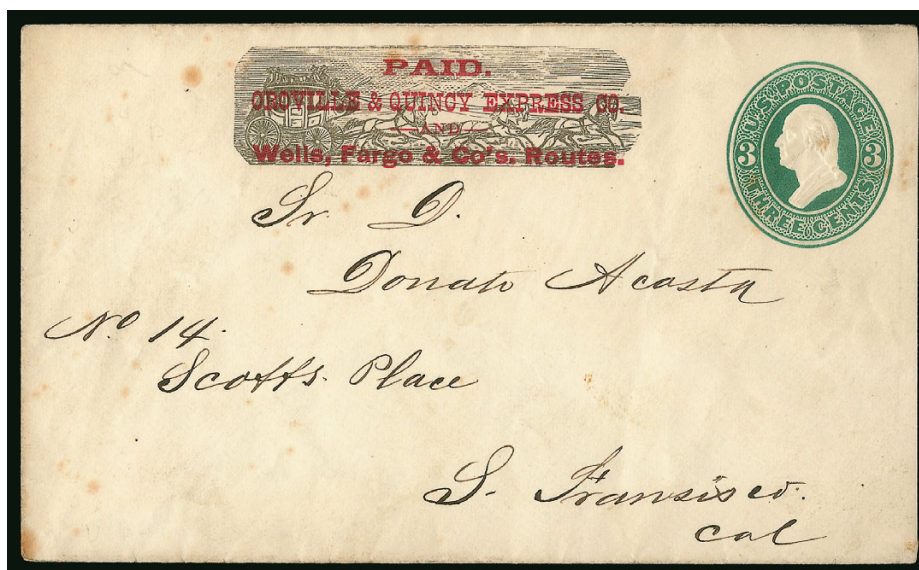 PAID.
OROVILLE & QUINCY EXPRESS CO.
AND
Wells, Fargo & Co's. Routes.
U.S. POSTAGE
3 3
THREE CENTS
Sr D.
Donato Acosta
No 14.
Scotts. Place
S. Fransisco.
Cal